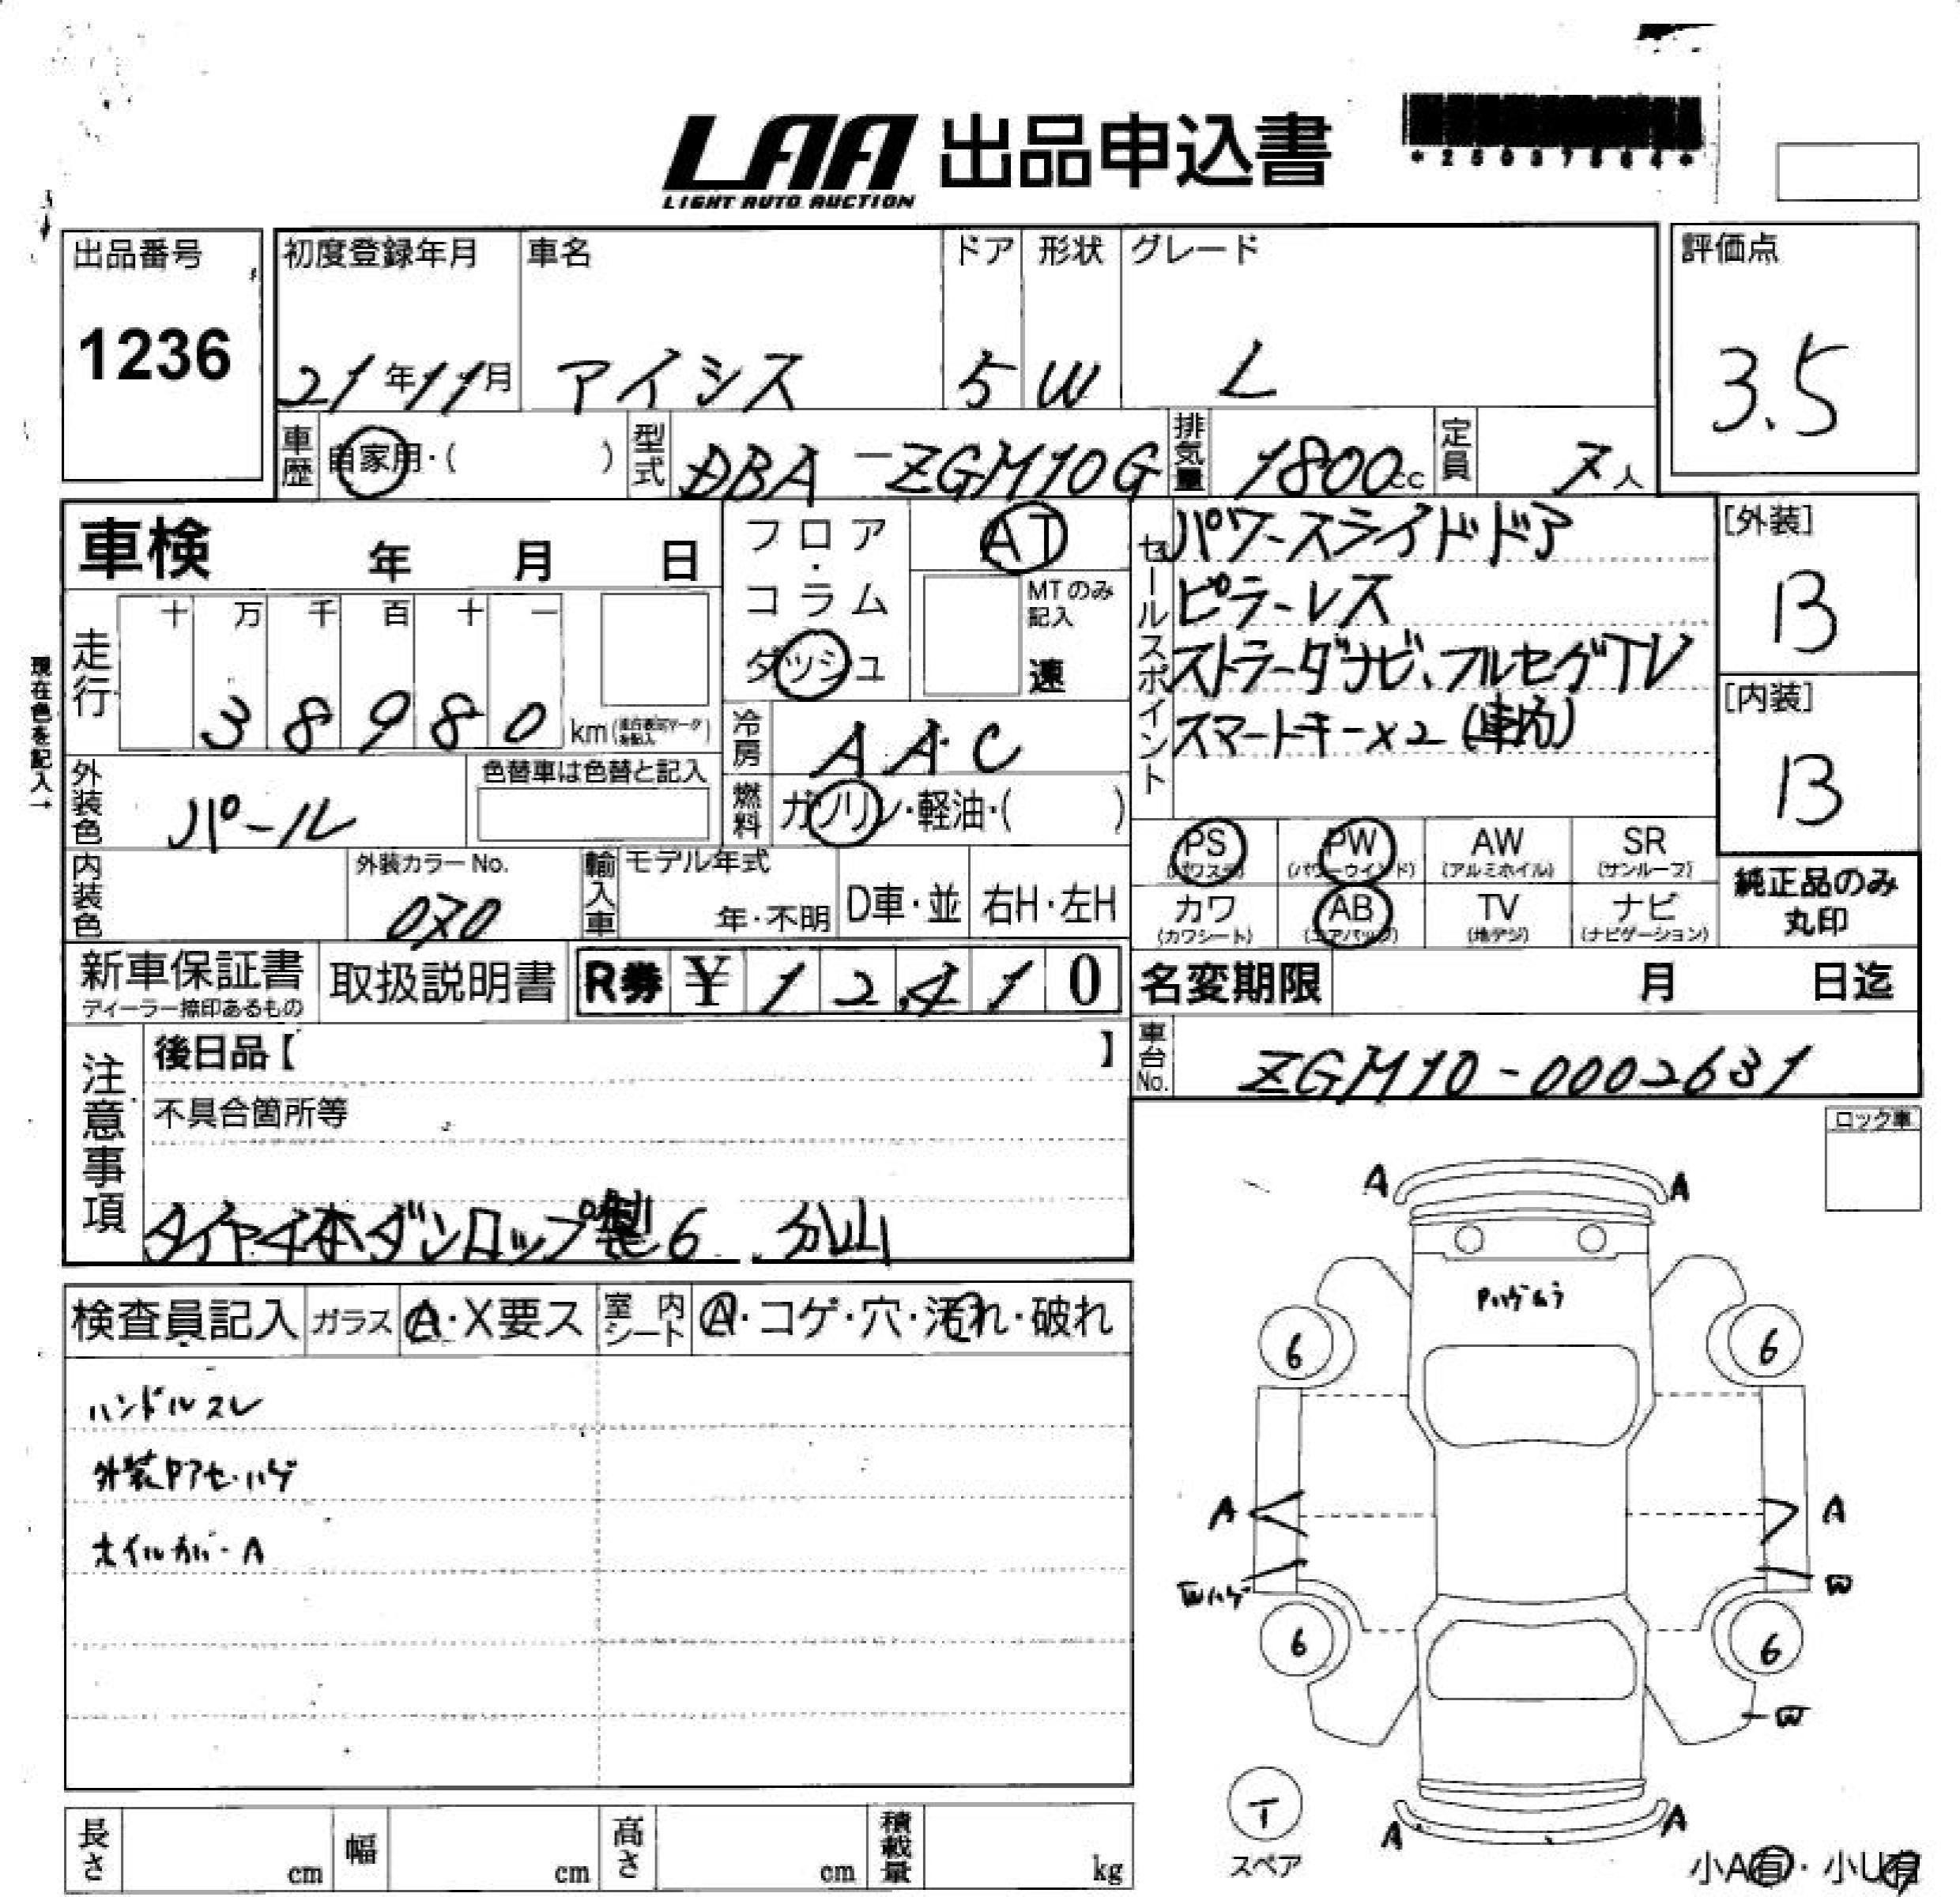 LAA 出品申込書
LIGHT AUTO AUCTION
出品番号 初度登録年月 車名 ドア 形状 グレード 評価点
1236 21年11月 アイシス 5 W L 3.5
車歴 自家用・( ) 型式 DBA-ZGM10G 排気量 1800cc 定員 7人
車検 年 月 日
フロア・コラム ダッシュ AT
MTのみ記入 速
セールスポイント
パワースライドドア
ピラーレス
ストラーダナビ、フルセグTV
スマートキー×2(車内)
[外装]
B
[内装]
B
現在色を記入→
走行 十 万 千 百 十 一
38980 km
冷房 AAC
外装色 パール 色替車は色替と記入
燃料 ガソリン・軽油・( )
PS PW AW SR
(パワステ) (パワーウインド) (アルミホイル) (サンルーフ)
カワ AB TV ナビ
(カワシート) (エアバッグ) (地デジ) (ナビゲーション)
純正品のみ
丸印
内装色 外装カラーNo. 070
輸入車 モデル年式 年・不明 D車・並 右H・左H
新車保証書 取扱説明書 R券 ¥ 12,410
ディーラー捺印あるもの
名変期限 月 日迄
車台No. ZGM10-0002631
注意事項
後日品【 】
不具合箇所等
タイヤ4本ダンロップ製6分山
ロック車
検査員記入 ガラス A・X要ス 室内シート A・コゲ・穴・汚れ・破れ
ハンドルスレ
外装Pアセ・ハゲ
ホイルカバーA
A A
Pハゲムラ
6 6
A A
Wハゲ W
6 6
W
T
スペア
A A
小A有・小U有
長さ cm 幅 cm 高さ cm 積載量 kg